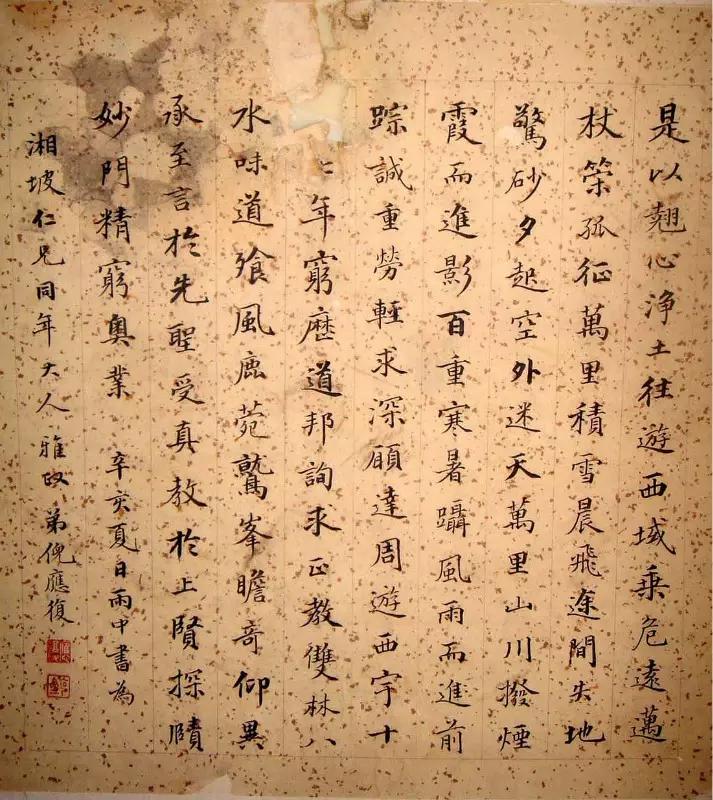 是以翹心浄土往遊西域乗危遠邁
杖策孤征萬里積雪晨飛途間失地
驚砂夕起空外迷天萬里山川撥煙
霞而進影百重寒暑躡風雨而進前
踪誠重勞輕求深願達周遊西宇十
七年窮歷道邦詢求正教雙林八
水味道飡風鹿菀鷲峯瞻奇仰異
承至言於先聖受真教於上賢探賾
妙門精窮奥業 辛亥夏日雨中書為
湘坡仁兄同年大人雅政 弟倪應復